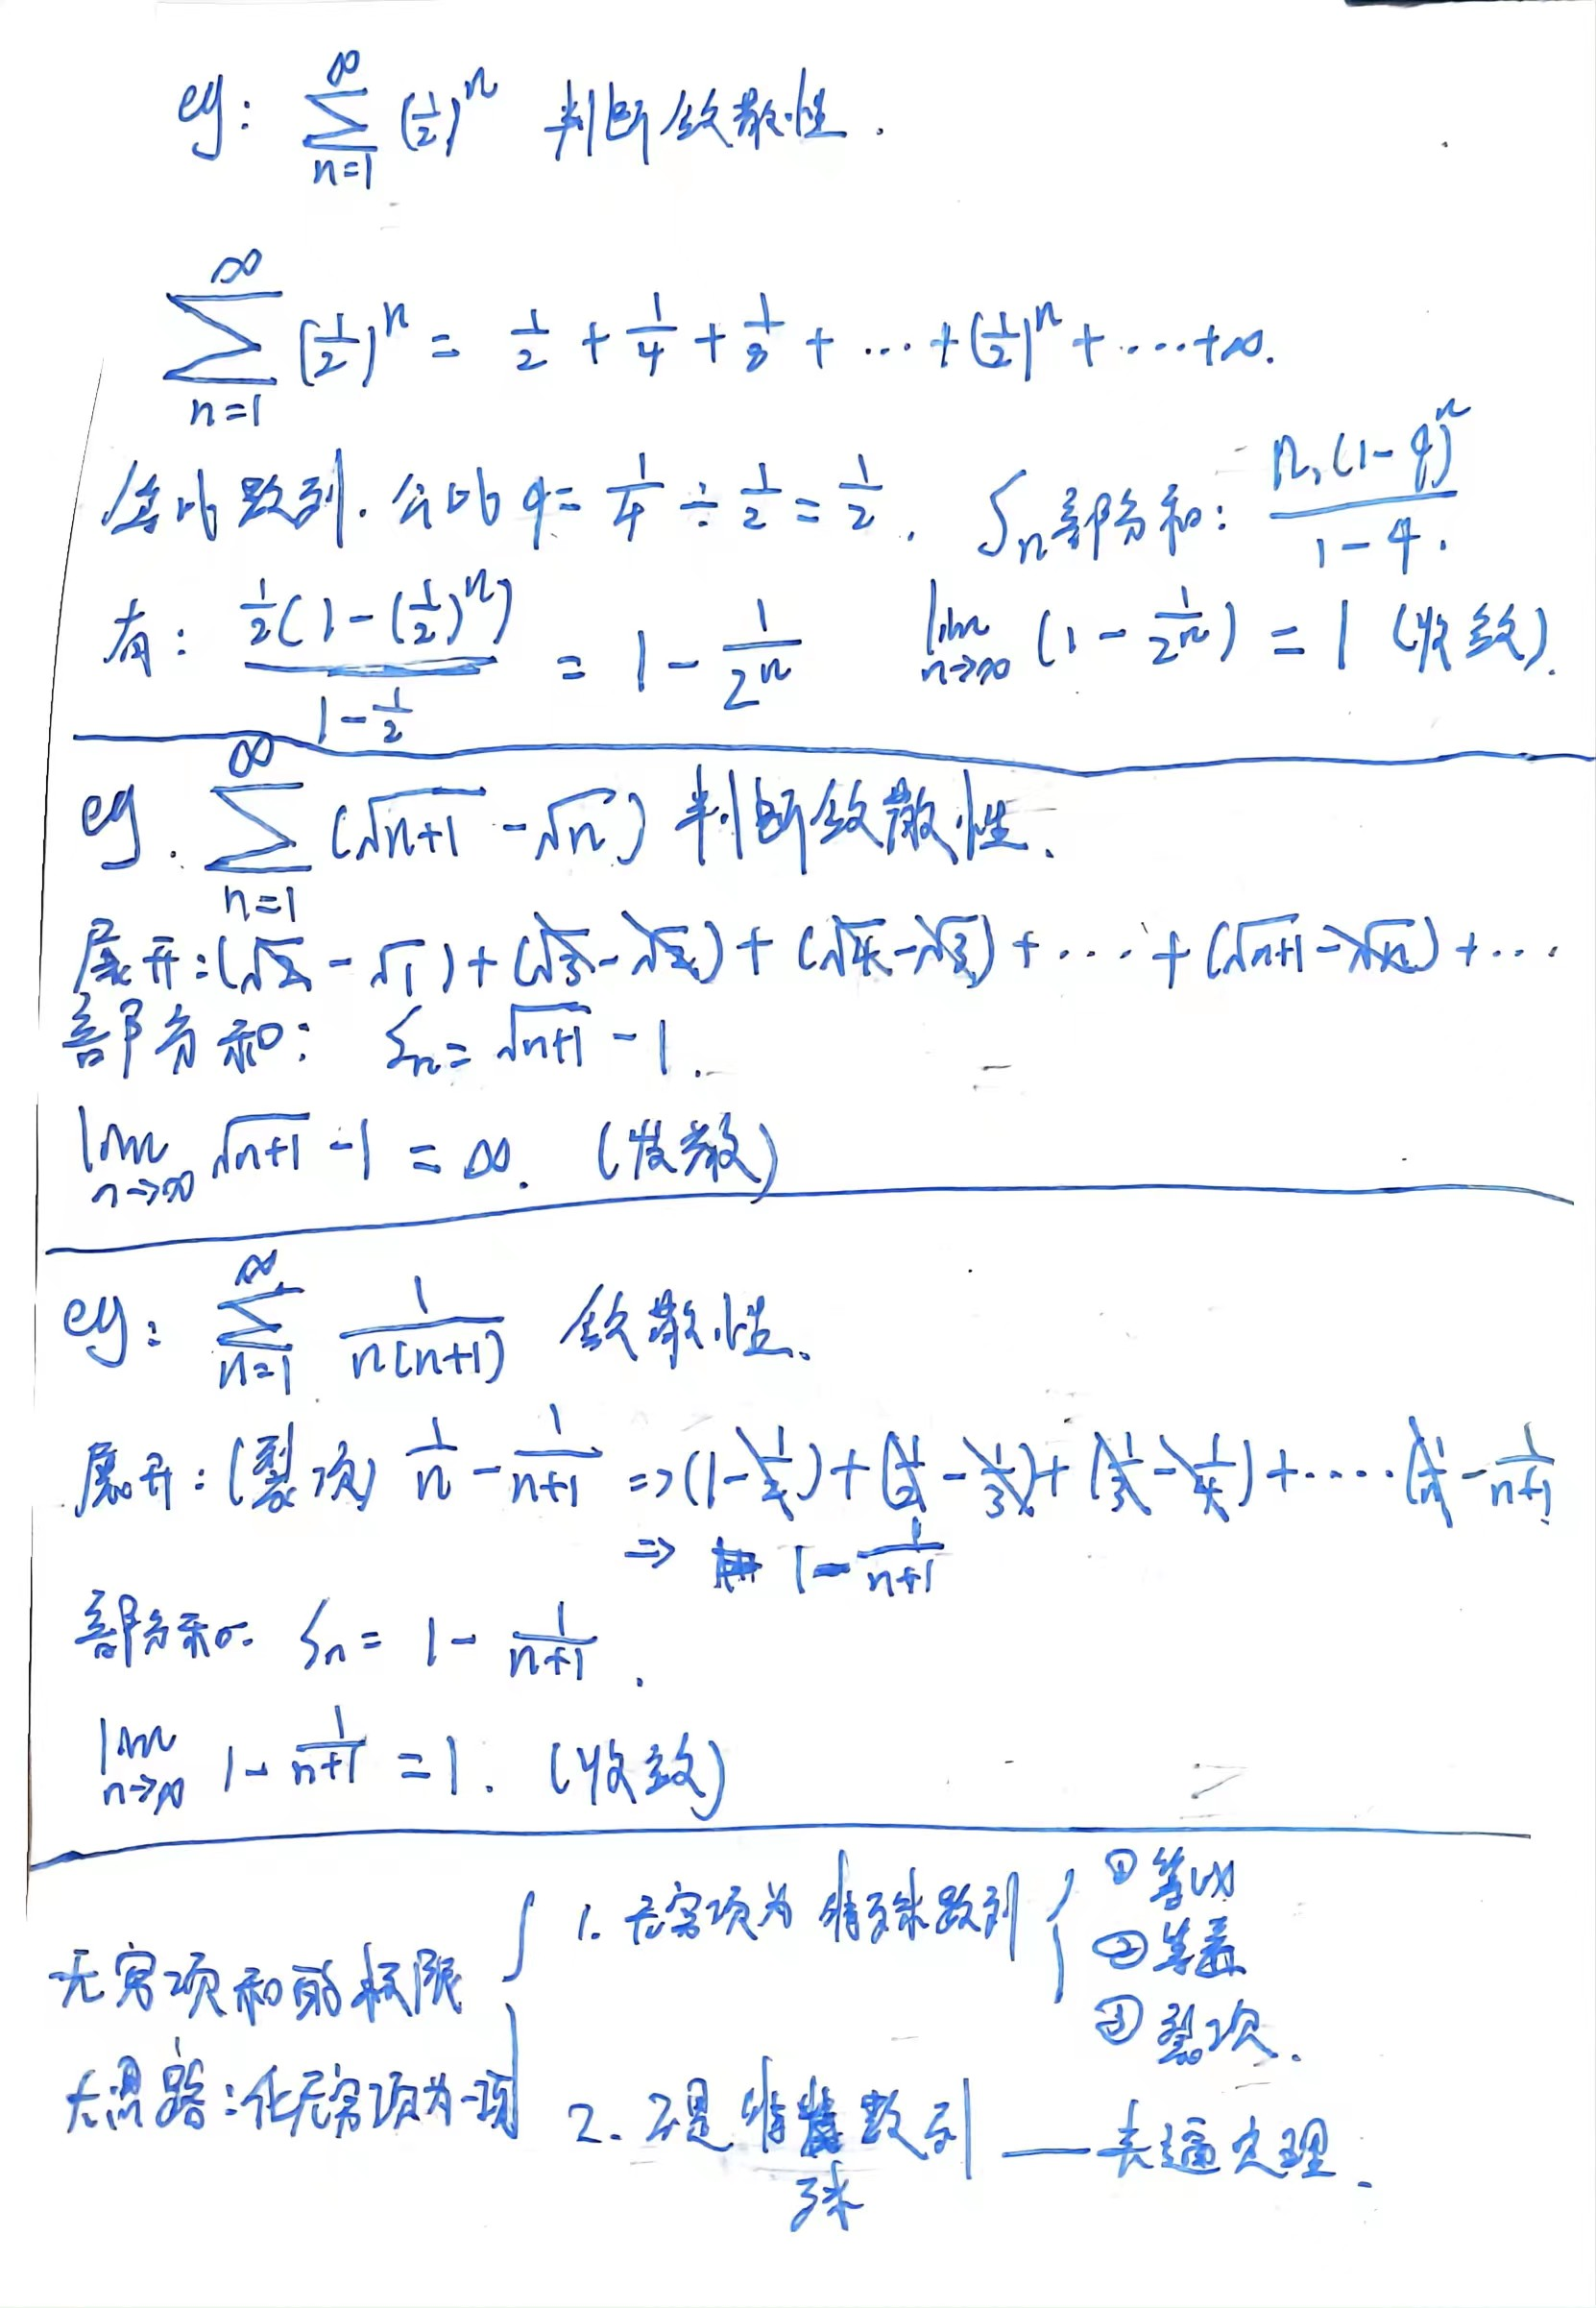 eg: ∑_{n=1}^{∞} (1/2)^n 判断敛散性.
∑_{n=1}^{∞} (1/2)^n = 1/2 + 1/4 + 1/8 + … + (1/2)^n + … + ∞.
等比数列. 公比 q = 1/4 ÷ 1/2 = 1/2. Sn部分和: n₁(1-q)^n / 1-q.
有: 1/2(1-(1/2)^n) / 1-1/2 = 1 - 1/2^n lim_{n→∞} (1 - 1/2^n) = 1 (收敛).
eg. ∑_{n=1}^{∞} (√n+1 - √n) 判断敛散性.
展开: (√2 - √1) + (√3 - √2) + (√4 - √3) + … + (√n+1 - √n) + …
部分和: Sn = √n+1 - 1.
lim_{n→∞} √n+1 - 1 = ∞. (发散)
eg: ∑_{n=1}^{∞} 1/n(n+1) 敛散性.
展开: (裂项) 1/n - 1/n+1 => (1 - 1/2) + (1/2 - 1/3) + (1/3 - 1/4) + … (1/n - 1/n+1
=> 1 - 1/n+1
部分和. Sn = 1 - 1/n+1.
lim_{n→∞} 1 - 1/n+1 = 1. (收敛)
无穷项和的极限
大思路: 化无穷项为一项
1. 无穷项为特殊数列
① 等比
② 等差
③ 裂项.
2. 不是特殊数列 — 夹逼定理.